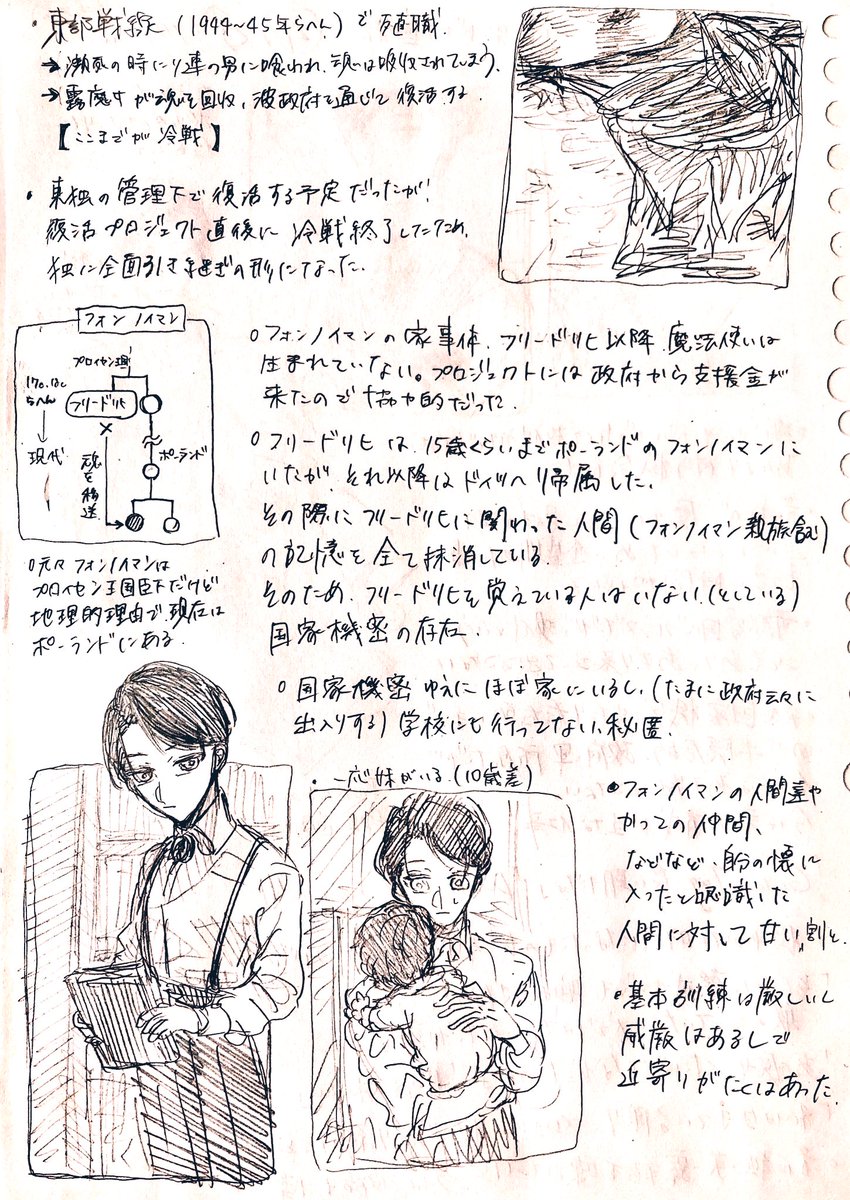 ・東部戦線 (1944〜45年らへん) で殉職.
→瀕死の時にソ連の男に喰われ、魂は吸収されてしまう.
→露魔サが魂を回収、波政府を通じて復活する.
【ここまでが冷戦】
・東独の管理下で復活する予定だったが、
復活プロジェクト直後に冷戦終了したため、
独に全面引き継ぎの形になった.
フォンノイマン
プロイセン
らへん
フリードリヒ
現代
魂を移送
ポーランド
○元々フォンノイマンは
プロイセン王国臣下だけど
地理的理由で、現在は
ポーランドにある.
○フォンノイマンの家事体、フリードリヒ以降、魔法使いは
生まれていない。プロジェクトには政府から支援金が
来たので協力的だった.
○フリードリヒは、15歳くらいまでポーランドのフォンノイマンに
いたが、それ以降はドイツへ帰属した.
その際にフリードリヒに関わった人間(フォンノイマン親族含む)
の記憶を全て抹消している.
そのため、フリードリヒを覚えている人はいない.(としている)
国家機密の存在.
○国家機密ゆえにほぼ家にいるし、(たまに政府云々に
出入りする)学校にも行ってない、秘匿.
・一応妹がいる.(10歳差)
●フォンノイマンの人間達や
かつての仲間、
などなど、自分の懐に
入ったと認識した
人間に対して甘い、割と.
●基本訓練は厳しいし
威厳はあるしで
近寄りがたくはあった.